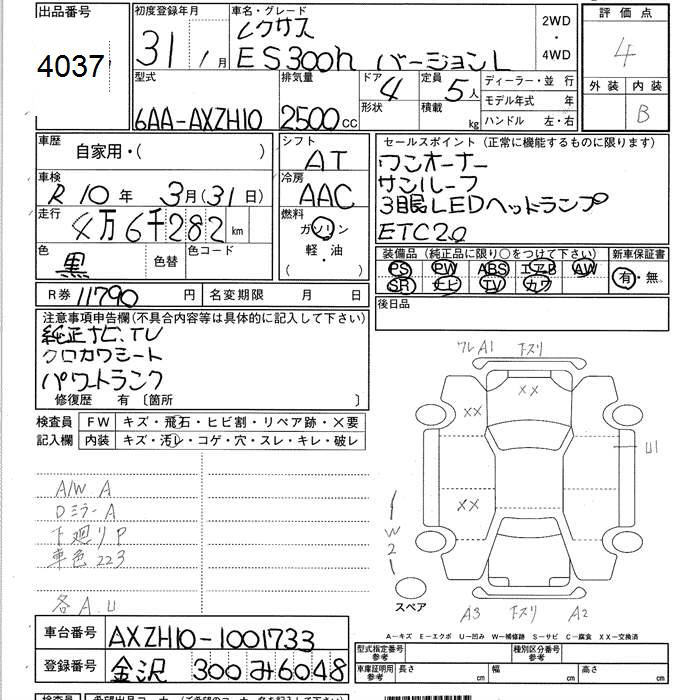 出品番号
4037
初度登録年月
31年1月
車名・グレード
レクサス
ES300h バージョンL
2WD
・
4WD
評価点
4
外装 内装
B
型式
6AA-AXZH10
排気量
2500cc
ドア 4
形状
定員 5人
積載 kg
ディーラー・並行
モデル年式 年
ハンドル 左・右
車歴
自家用・( )
シフト
AT
車検
R10年 3月(31日)
冷房
AAC
走行
4万6千282km
燃料
ガソリン
軽・油
( )
色
黒
色替
色コード
R券 11790円
名変期限 月 日
セールスポイント(正常に機能するものに限ります)
ワンオーナー
サンルーフ
3眼LEDヘッドランプ
ETC2.0
装備品(純正品に限り○をつけて下さい)
新車保証書
PS PW ABS エアB AW
SR ナビ TV カワ
有・無
後日品
注意事項申告欄(不具合内容等は具体的に記入して下さい)
純正ナビ、TV
クロカワシート
パワートランク
修復歴 有〔箇所 〕
検査員
記入欄
FW キズ・飛石・ヒビ割・リペア跡・×要
内装 キズ・汚レ・コゲ・穴・スレ・キレ・破レ
A/W A
DミラーA
下廻りP
車色223
各A.U
ワレA1 下スリ
××
××
××
U1
W2
スペア
A3 下スリ A2
A-キズ E-エクボ U-凹み W-補修跡 S-サビ C-腐食 XX-交換済
車台番号
AXZH10-1001733
登録番号
金沢 300み6048
型式指定番号
参考
種別区分番号
参考
車庫証明用
参考
長さ
幅
高さ
検査員
希望出品コーナー(ご希望のコーナー名を記入して下さい)